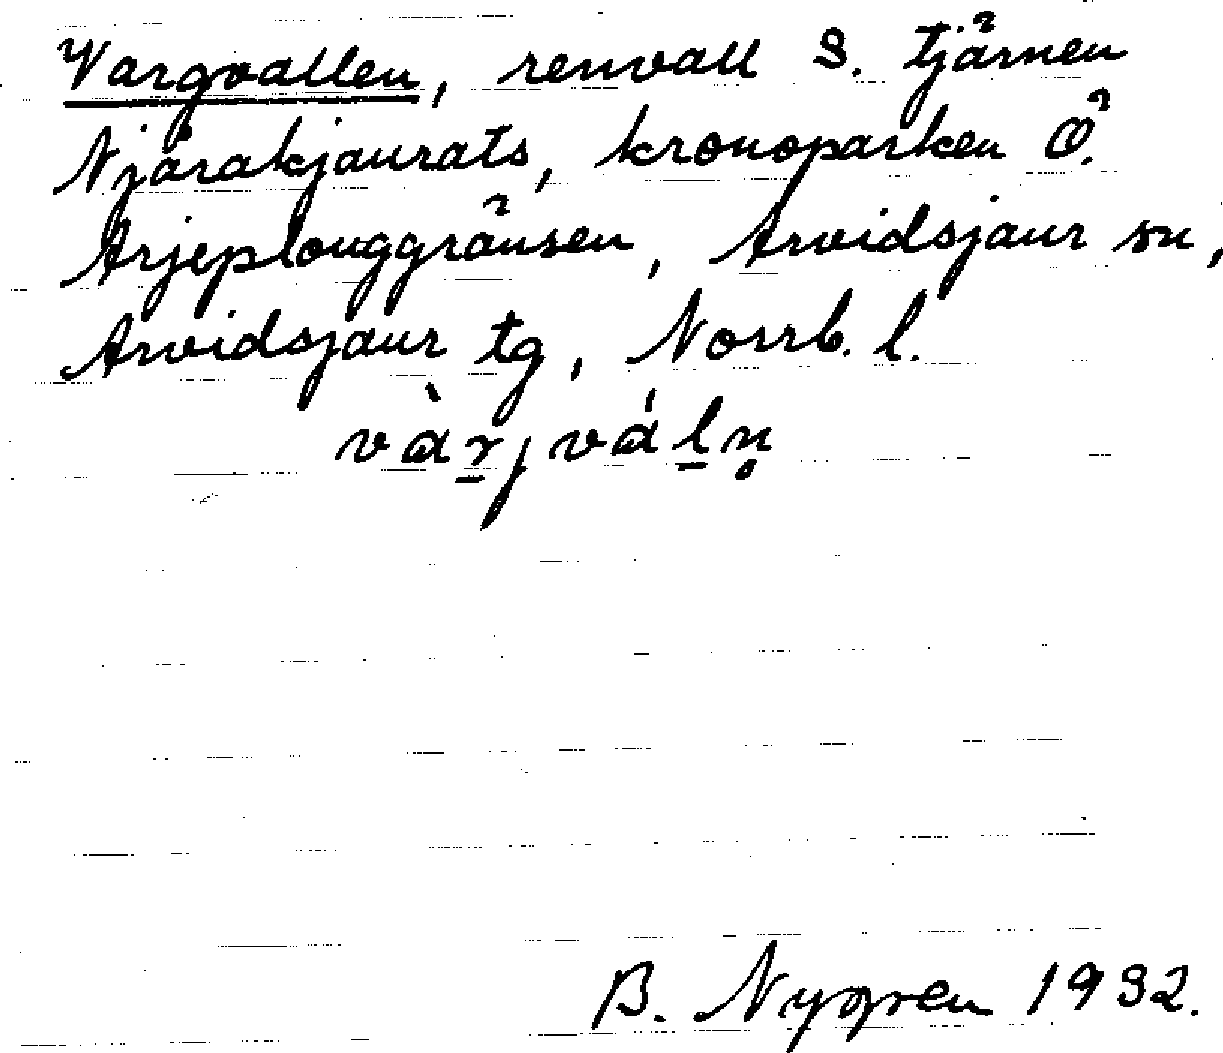 Vargvallen, renvall S. tjärnen
Njarakjaurats, kronoparken Ö.
Arjeplouggränsen, Arvidsjaur sn,
Arvidsjaur tg, Norrb. l.
vàr̠jvál̠n̥
B. Nygren 1932.